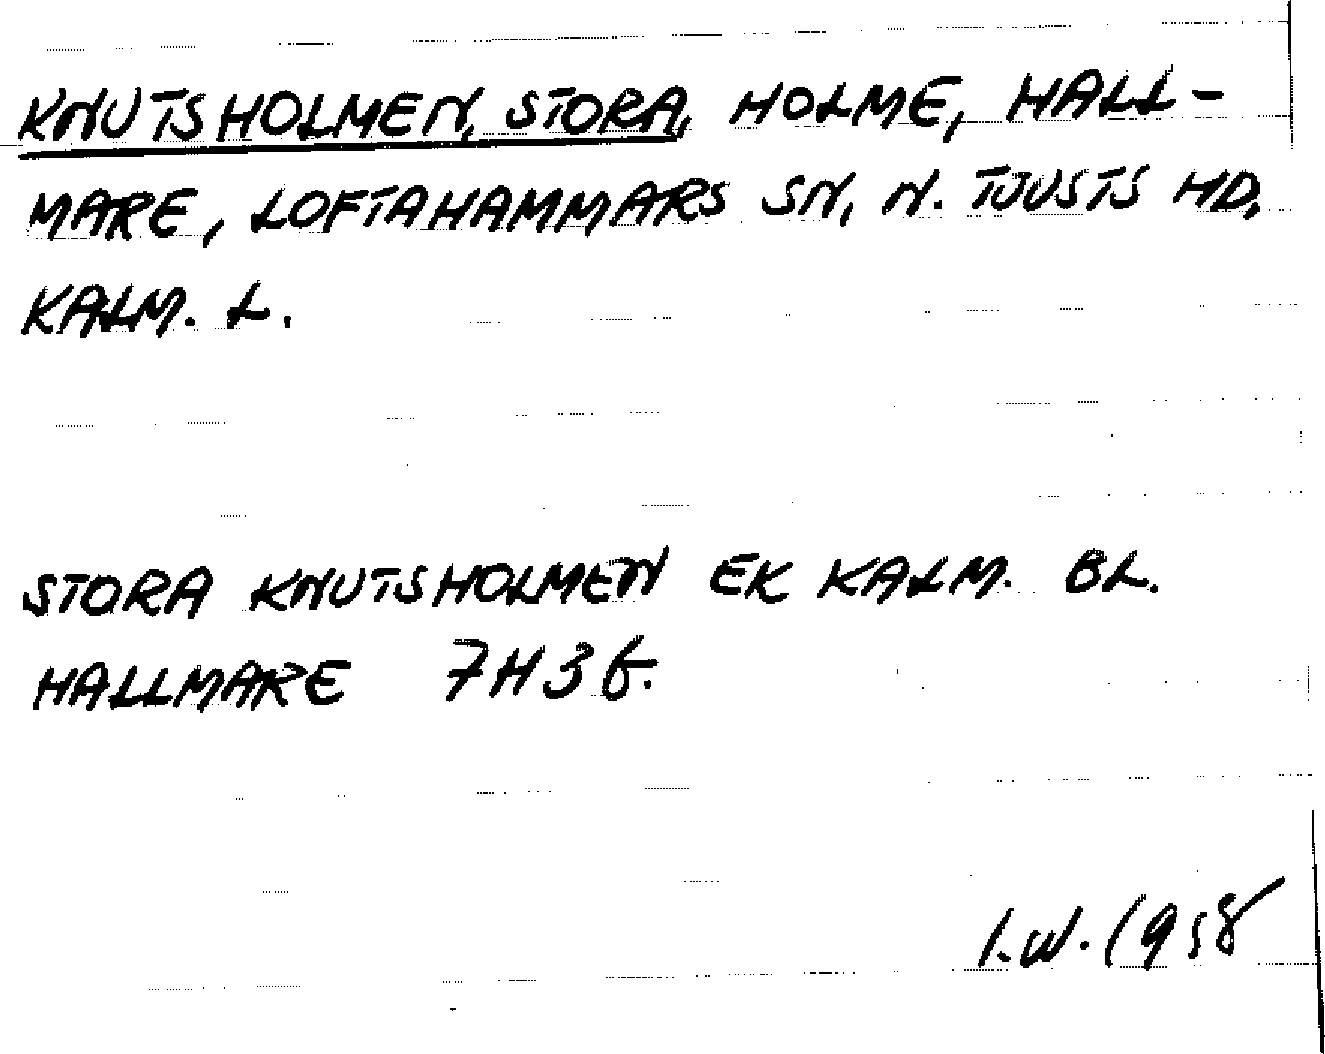 KNUTSHOLMEN, STORA, HOLME, HALL-
MARE, LOFTAHAMMARS SN, N. TJUSTS HD,
KALM. L.
STORA KNUTSHOLMEN EK KALM. BL.
HALLMARE 7H3G.
I.W. 1958